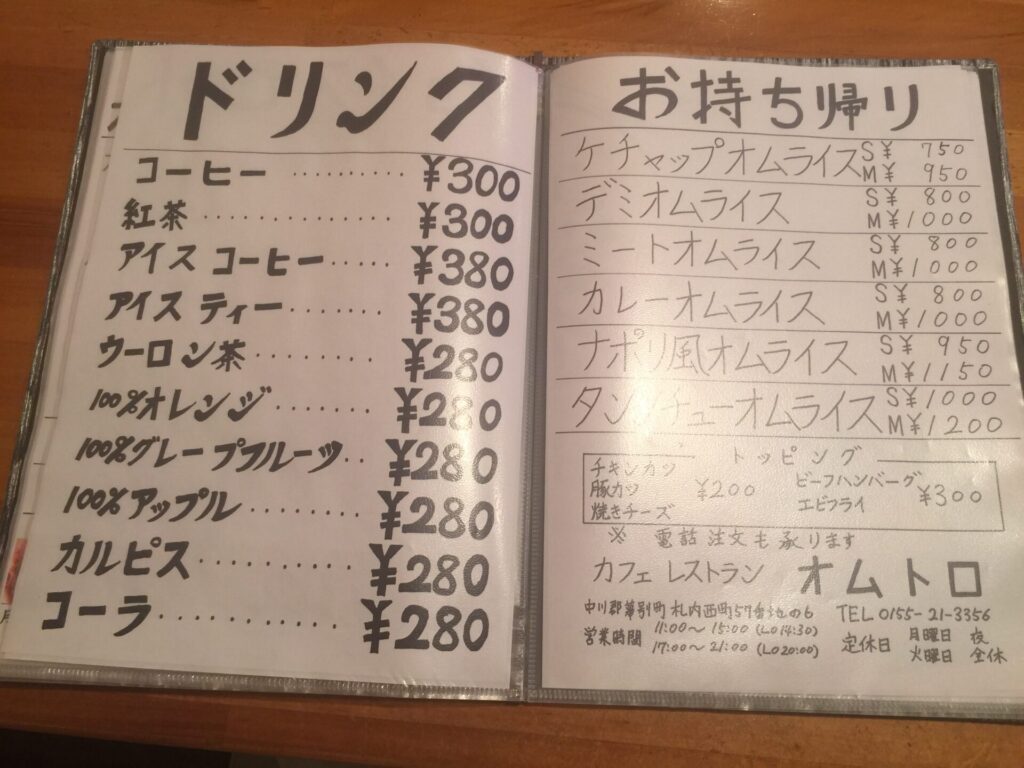 ドリンク
コーヒー ·········· ¥300
紅茶 ·················· ¥300
アイスコーヒー ····· ¥380
アイスティー ······· ¥380
ウーロン茶 ·········· ¥280
100%オレンジ ······· ¥280
100%グレープフルーツ ·· ¥280
100%アップル ········ ¥280
カルピス ············ ¥280
コーラ ············ ¥280
お持ち帰り
ケチャップオムライス S¥ 750
M¥ 950
デミオムライス S¥ 800
M¥1000
ミートオムライス S¥ 800
M¥1000
カレーオムライス S¥ 800
M¥1000
ナポリ風オムライス S¥ 950
M¥1150
タンシチューオムライス S¥1000
M¥1200
トッピング
チキンカツ
豚カツ
焼きチーズ
¥200
ビーフハンバーグ
エビフライ
¥300
※ 電話注文も承ります
カフェレストラン オムトロ
中川郡幕別町札内西町57番地の6 TEL 0155-21-3356
営業時間 11:00〜15:00 (LO 14:30)
17:00〜21:00 (LO 20:00)
定休日 月曜日 夜
火曜日 全休